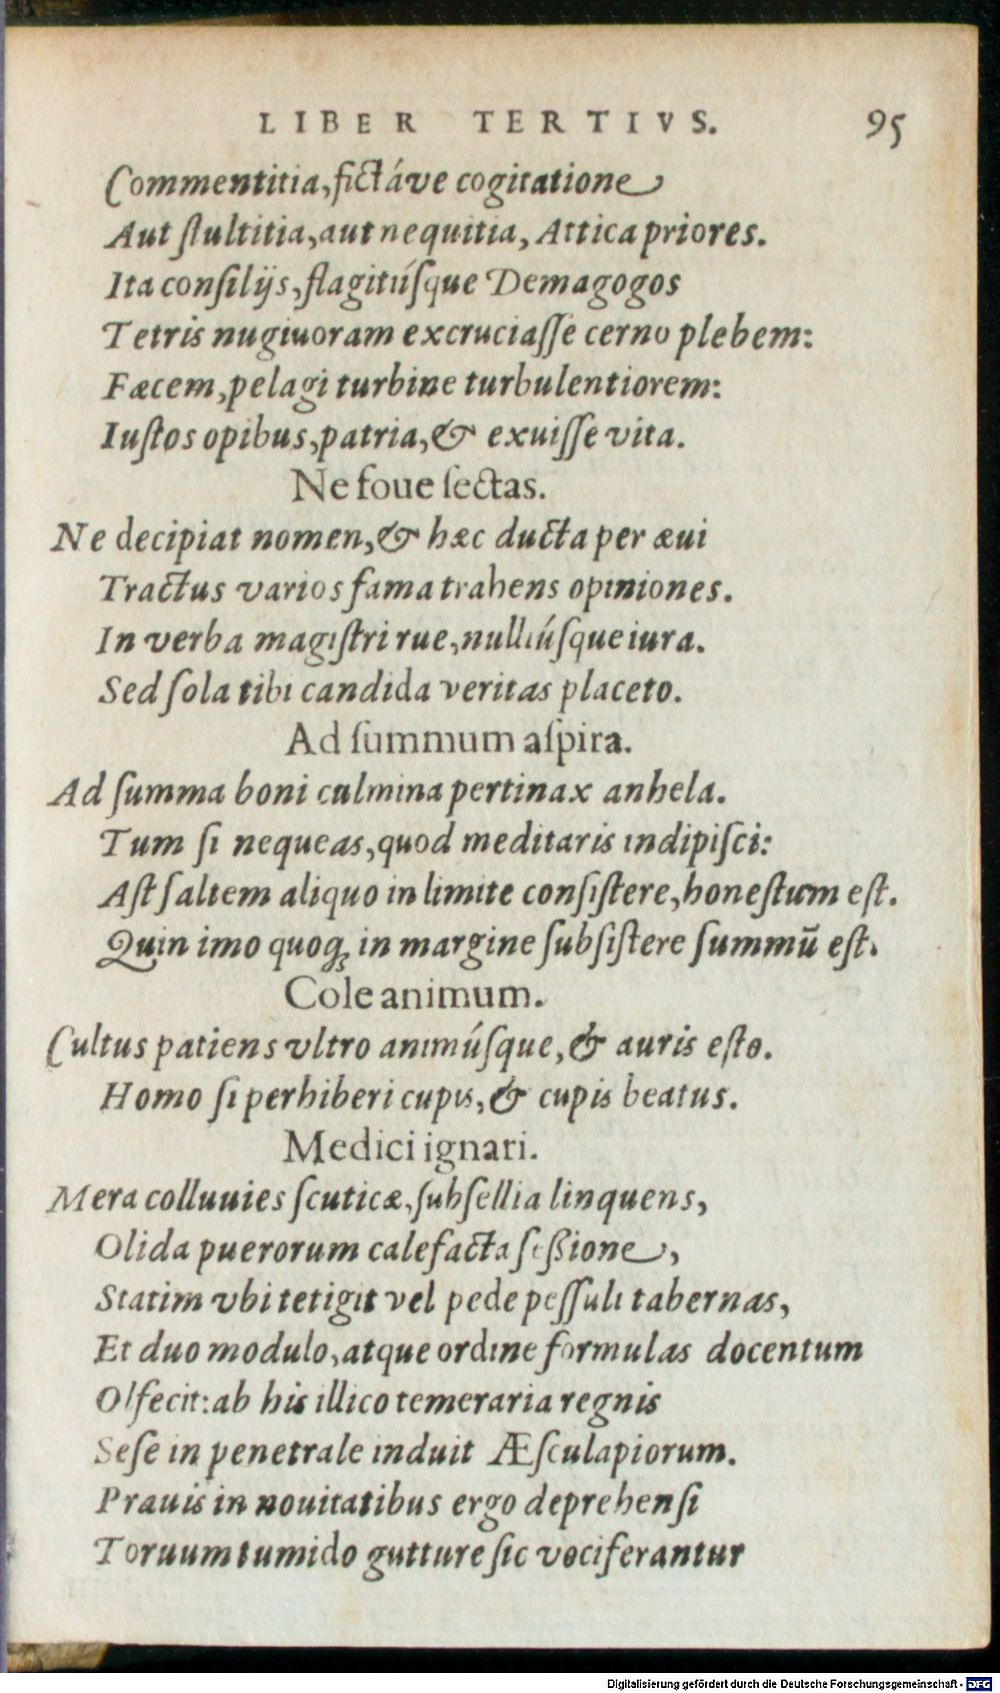 LIBER TERTIVS. 95
Commentitia, fictáve cogitatione
Aut ſtultitia, aut nequitia, Attica priores.
Ita conſilijs, flagitiíſque Demagogos
Tetris nugiuoram excruciaſſe cerno plebem:
Fæcem, pelagi turbine turbulentiorem:
Iuſtos opibus, patria, & exuiſſe vita.
Ne foue ſectas.
Ne decipiat nomen, & hæc ducta per æui
Tractus varios fama trahens opiniones.
In verba magiſtri rue, nulliúſque iura.
Sed ſola tibi candida veritas placeto.
Ad ſummum aſpira.
Ad ſumma boni culmina pertinax anhela.
Tum ſi nequeas, quod meditaris indipiſci:
Aſt ſaltem aliquo in limite conſiſtere, honeſtum eſt.
Quin imo quoq; in margine ſubſiſtere ſummũ eſt.
Cole animum.
Cultus patiens vltro animúſque, & auris eſto.
Homo ſi perhiberi cupis, & cupis beatus.
Medici ignari.
Mera colluuies ſcuticæ, ſubſellia linquens,
Olida puerorum calefacta ſeßione,
Statim vbi tetigit vel pede peſſuli tabernas,
Et duo modulo, atque ordine formulas docentum
Olfecit: ab his illico temeraria regnis
Seſe in penetrale induit Æſculapiorum.
Prauis in nouitatibus ergo deprehenſi
Toruum tumido gutture ſic vociferantur
Digitalisierung gefördert durch die Deutsche Forschungsgemeinschaft - DFG